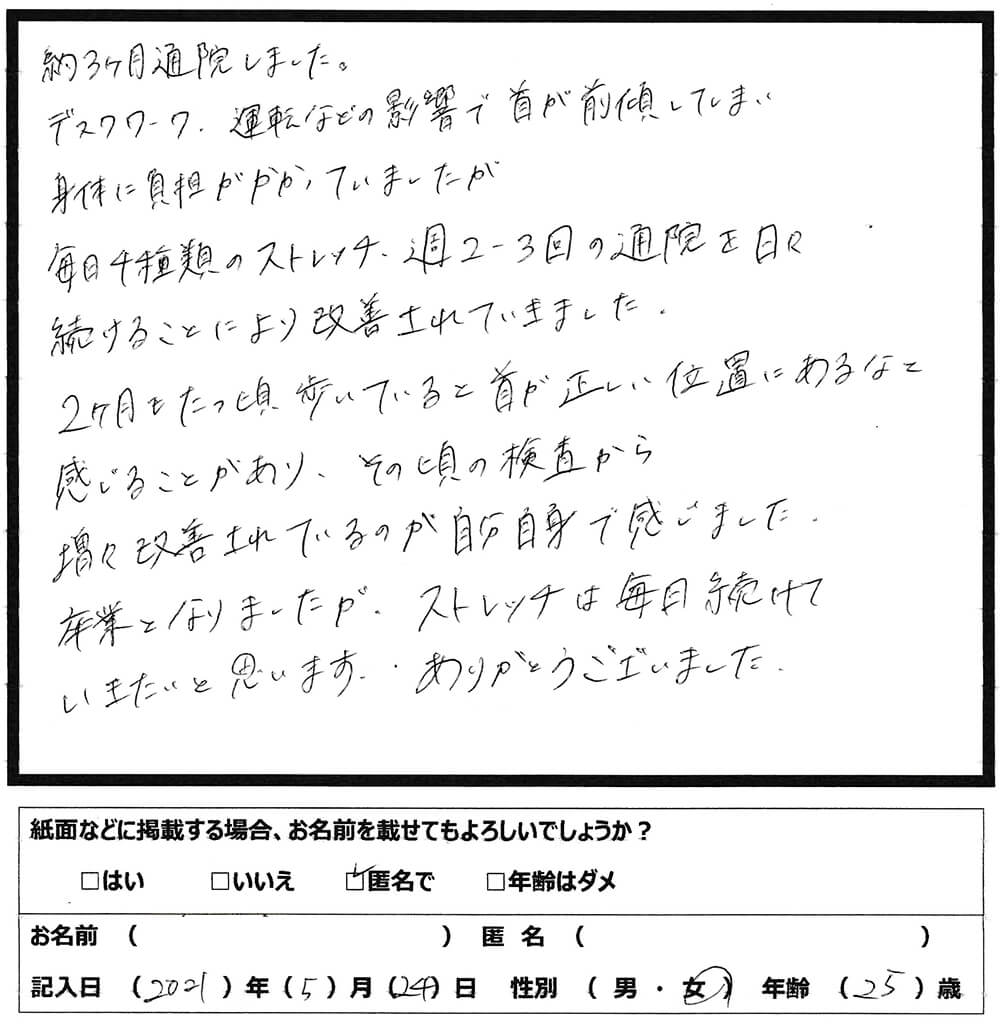 約3ヶ月通院しました。
デスクワーク、運転などの影響で首が前傾してしまい
身体に負担がかかっていましたが
毎日4種類のストレッチ、週2-3回の通院を日々
続けることにより改善されていきました。
2ヶ月もたつ頃 歩いていると首が正しい位置にあるなと
感じることがあり、その頃の検査から
増々改善されているのが自分自身で感じました。
卒業となりましたが、ストレッチは毎日続けて
いきたいと思います。ありがとうございました。
紙面などに掲載する場合、お名前を載せてもよろしいでしょうか？
□はい □いいえ ☑匿名で □年齢はダメ
お名前 （ ） 匿 名 （ ）
記入日 （2021）年（5）月（24）日 性別 （ 男 ・ 女 ） 年齢 （25）歳